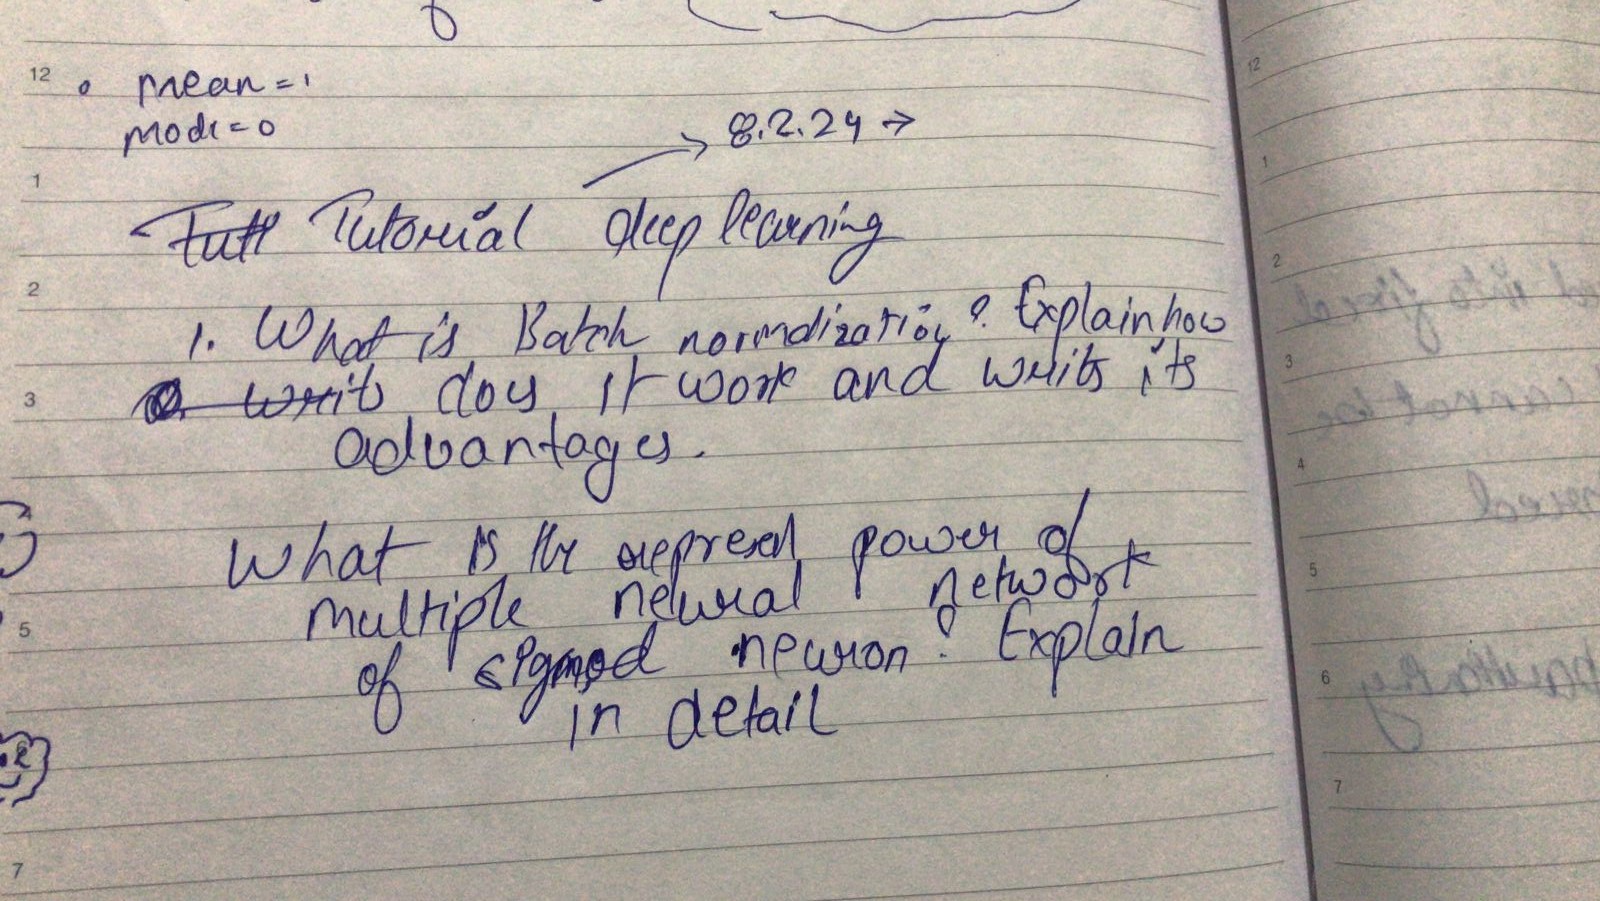 12
• mean = 1
mode = 0
8.2.24 →
1
Tutorial deep learning
2
1. What is Batch normalization? Explain how
3
writ does it work and writs its
advantages.
4
What is the represen power of
multiple neural network
5
of sigmod neuron? Explain
in detail
7
12
1
2
3
4
5
6
7